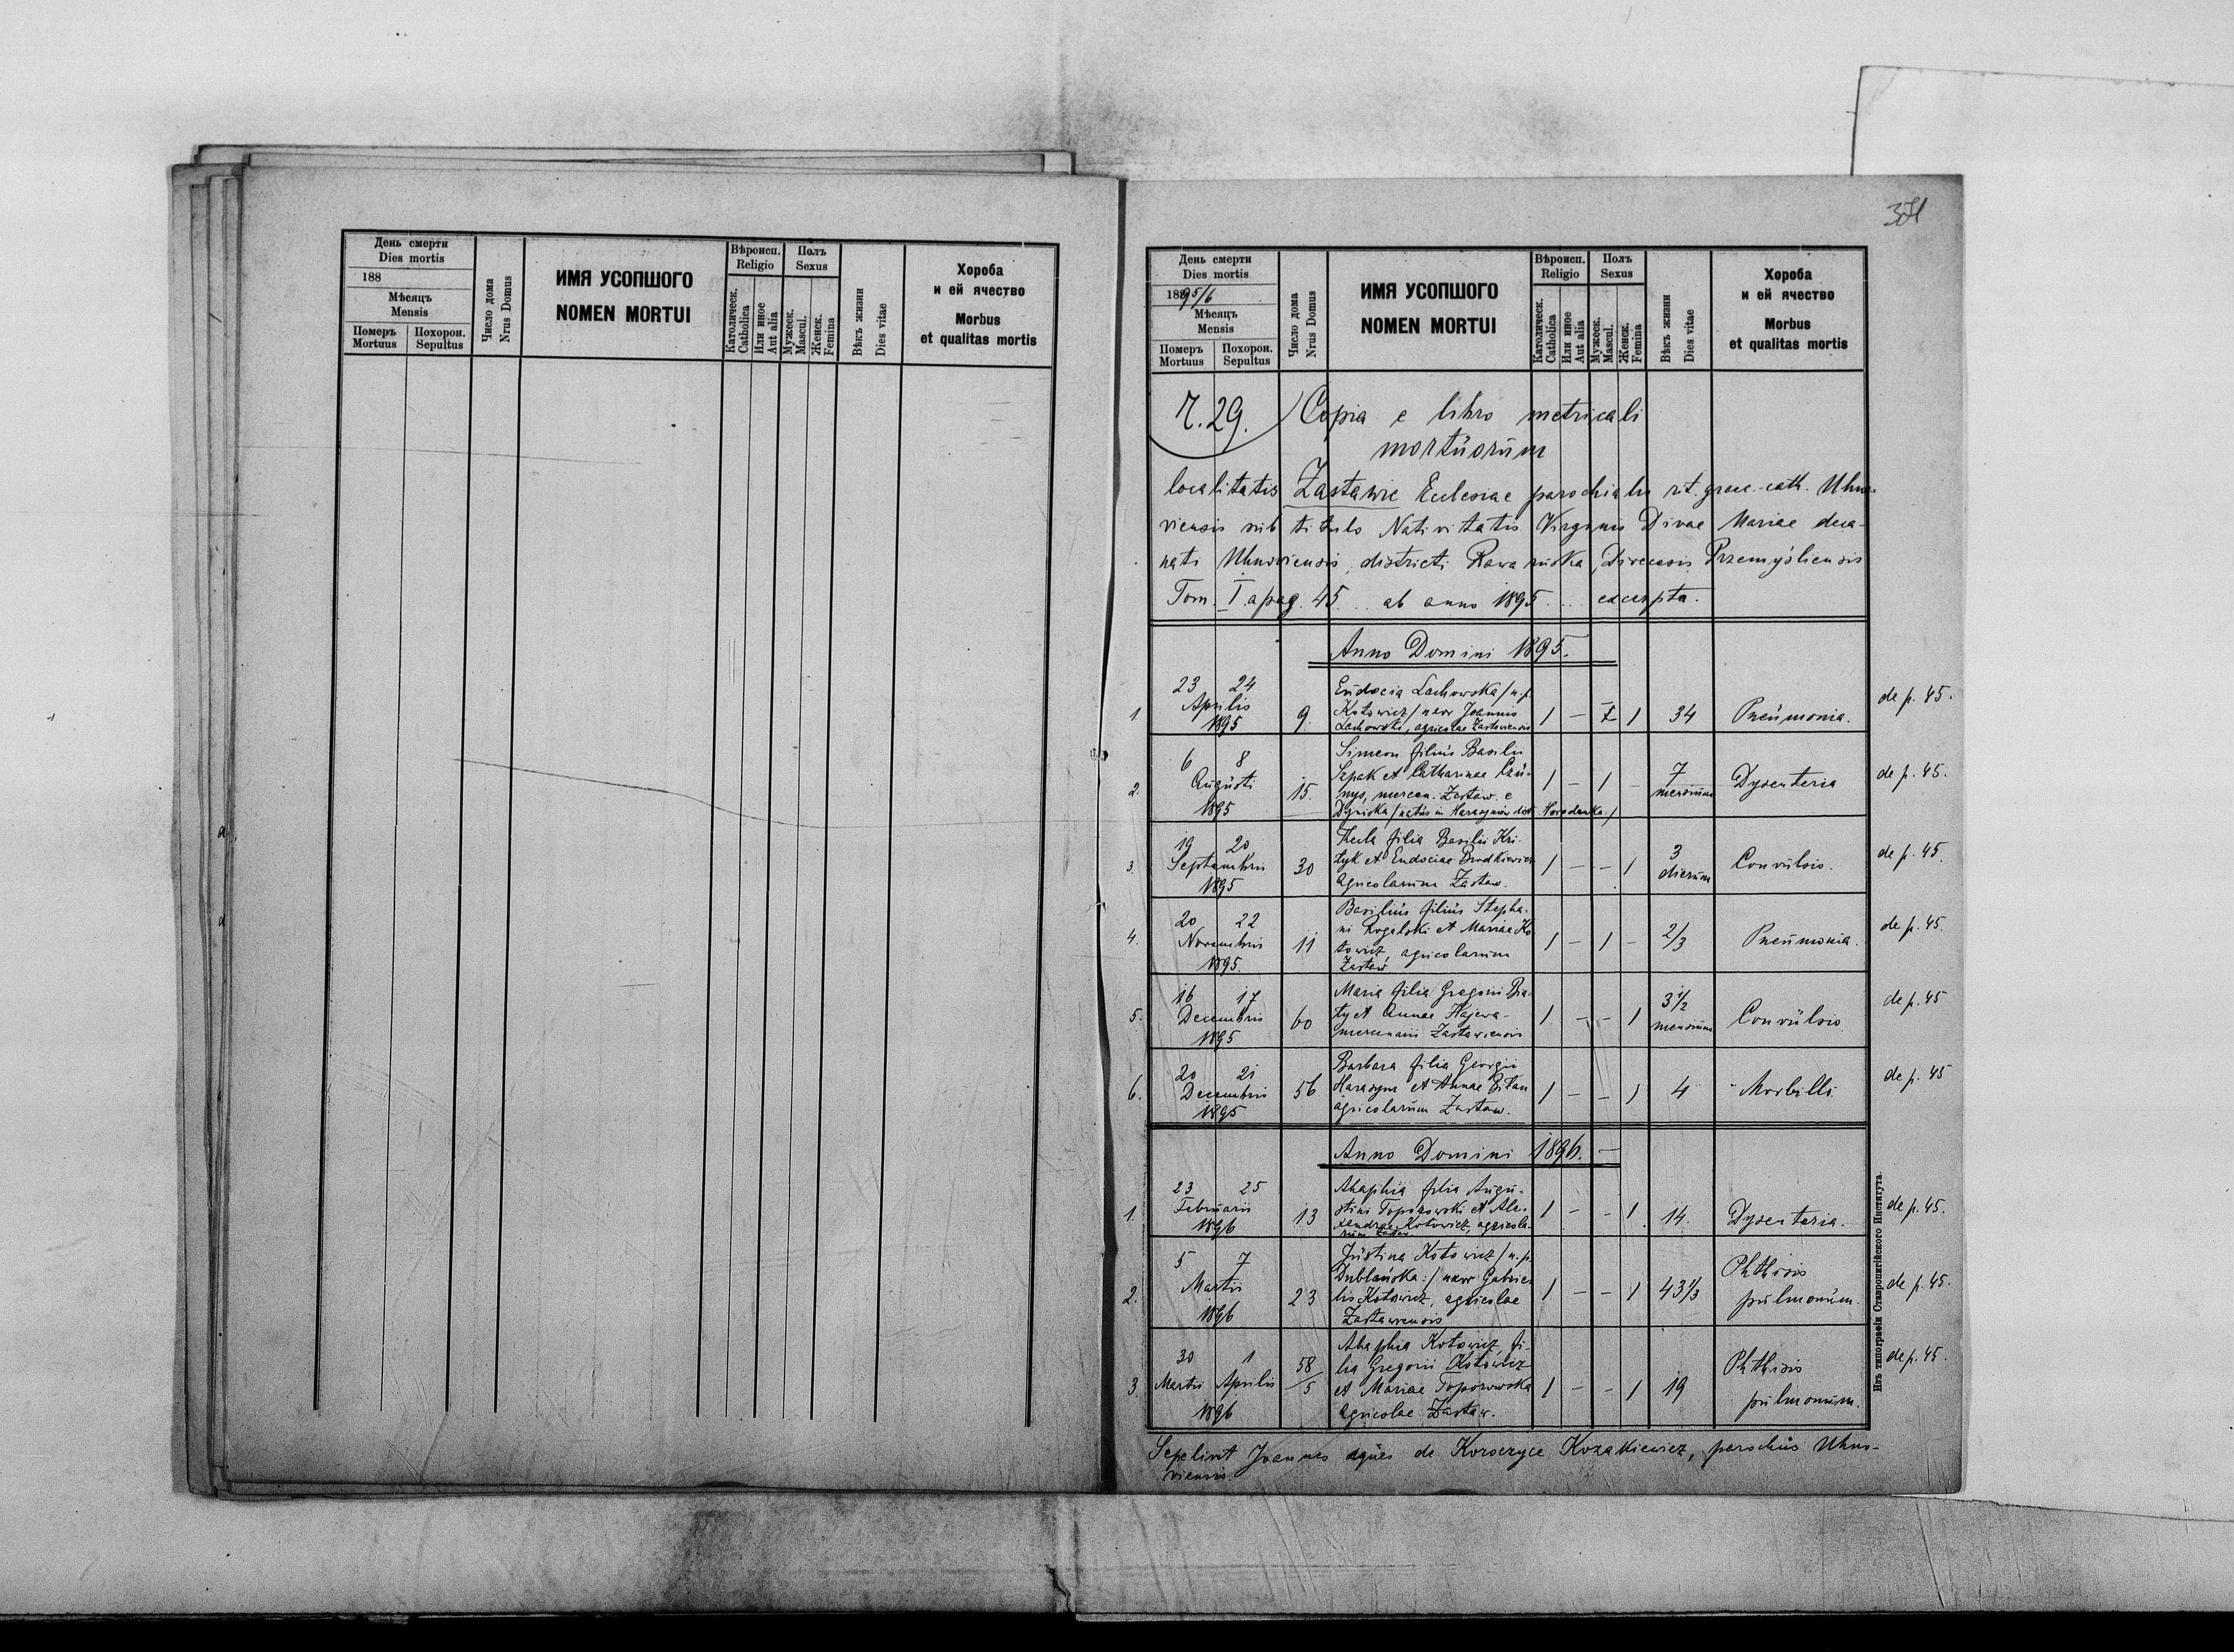 День смерти
Dies mortis
188
Мѣсяцъ
Mensis
Померъ
Mortuus
Похорон.
Sepultus
Число дома
Nrus Domus
ИМЯ УСОПШОГО
NOMEN MORTUI
Вѣроисп.
Religio
Католическ.
Catholica
Или иное
Aut alia
Полъ
Sexus
Мужеск.
Mascul.
Женск.
Femina
Вѣкъ жизни
Dies vitae
Хороба
и ей ячество
Morbus
et qualitas mortis
371
День смерти
Dies mortis
1895/6
Мѣсяцъ
Mensis
Померъ
Mortuus
Похорон.
Sepultus
Число дома
Nrus Domus
ИМЯ УСОПШОГО
NOMEN MORTUI
Вѣроисп.
Religio
Католическ.
Catholica
Или иное
Aut alia
Полъ
Sexus
Мужеск.
Mascul.
Женск.
Femina
Вѣкъ жизни
Dies vitae
Хороба
и ей ячество
Morbus
et qualitas mortis
29. Copia e libro metricali
mortuorum
localitatis Zastawie Ecclesiae parochialis rit. graec. cath. Uhno-
viensis sub titulo Nativitatis Virginis Divae Mariae deca-
nati Uhnoviensis, districti Rawa ruska, Dioecesis Przemysliensis
Tom. I. a pag. 45. ab anno 1895. excerpta.
Anno Domini 1895.
1 23 24 Aprilis 1895 9. Eudocia Lachowska /n. p.
Kotowicz/ uxor Joannis
Lachowski, agricolae Zastaviensis 1 – 1 34 Pneumonia. de p. 45.
2. 6 8 Augusti 1895 15. Simeon filius Basilii
Sepak et Catharinae
mercen. Zastaw. e
Dyniska /natus in Harasymów distr. Horodenka:/ 1 – 1 – 7 mensium Dysenteria de p. 45.
3. 19 20 Septembris 1895 30 Thecla filia Basilii Kri-
tyk et Eudociae Brodkiewicz
agricolarum Zastaw. 1 – – 1 3 dierum Convulsio. de p. 45.
4. 20 22 Novembris 1895. 11 Basilius filius Stepha-
ni Rogalski et Mariae Ko-
towicz, agricolarum
Zastaw 1 – 1 – 2/3 Pneumonia. de p. 45.
5. 16 17 Decembris 1895 60 Maria filia Gregorii Bia-
ty et Annae Hajewa-
mercenarii Zastawiensis 1 – – 1 3 1/2 mensium Convulsio. de p. 45
6. 20 21 Decembris 1895 56 Barbara filia Georgii
Harasym et Annae Bilan
agricolarum Zastaw. 1 – – 1 4 Morbilli de p. 45
Anno Domini 1896. –
1. 23 25 Februarii 1896 13 Ahaphia filia Augu-
stini Toporowski et Ale-
xandrae Kotowicz, agricola-
rum Zastaw 1 – – 1 14. Dysenteria. de p. 45.
2. 5 7 Martii 1896 23 Justina Kotowicz /n. p.
Dublańska:/ uxor Gabrie-
lis Kotowicz, agricolae
Zastawiensis 1 – – 1 43 1/3 Phthisis
pulmonum. de p. 45.
3 30 Martii 1 Aprilis 1896 58/5 Ahaphia Kotowicz, fi-
lia Gregorii Kotowicz
et Mariae Toporowska
agricolae Zastaw. 1 – – 1 19 Phthisis
pulmonum. de p. 45.
Sepelivit Joannes eques de Koroczyce Kozakiewicz, parochus Uhno-
viensis.
Изъ типографіи Ставропигійского Института.